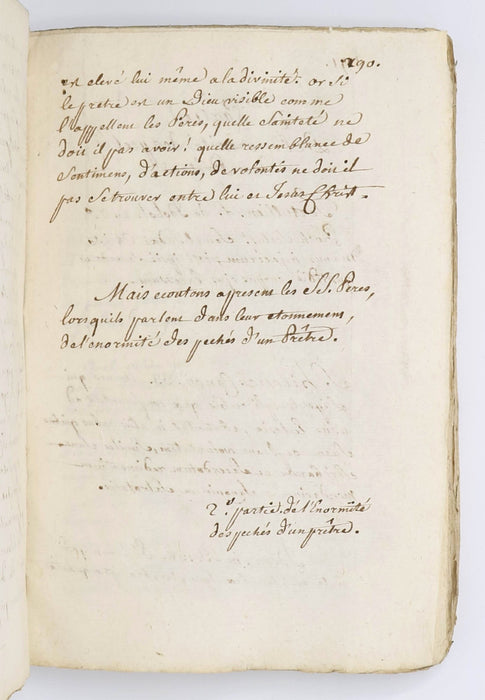 290.
est elevé lui même a la divinité. or si
le prêtre est un Dieu visible comme
l'appellent les Peres, quelle Sainteté ne
doit il pas avoir! quelle ressemblance de
Sentimens, d'actions, de volontés ne doit il
pas se trouver entre lui et Jesus Christ.
Mais ecoutons apresent les S.S. Peres,
lorsquils parlent dans leur etonnement,
de l'enormité des pechés d'un Prêtre.
2.e partie. de l'Enormité
des pechés d'un prêtre.